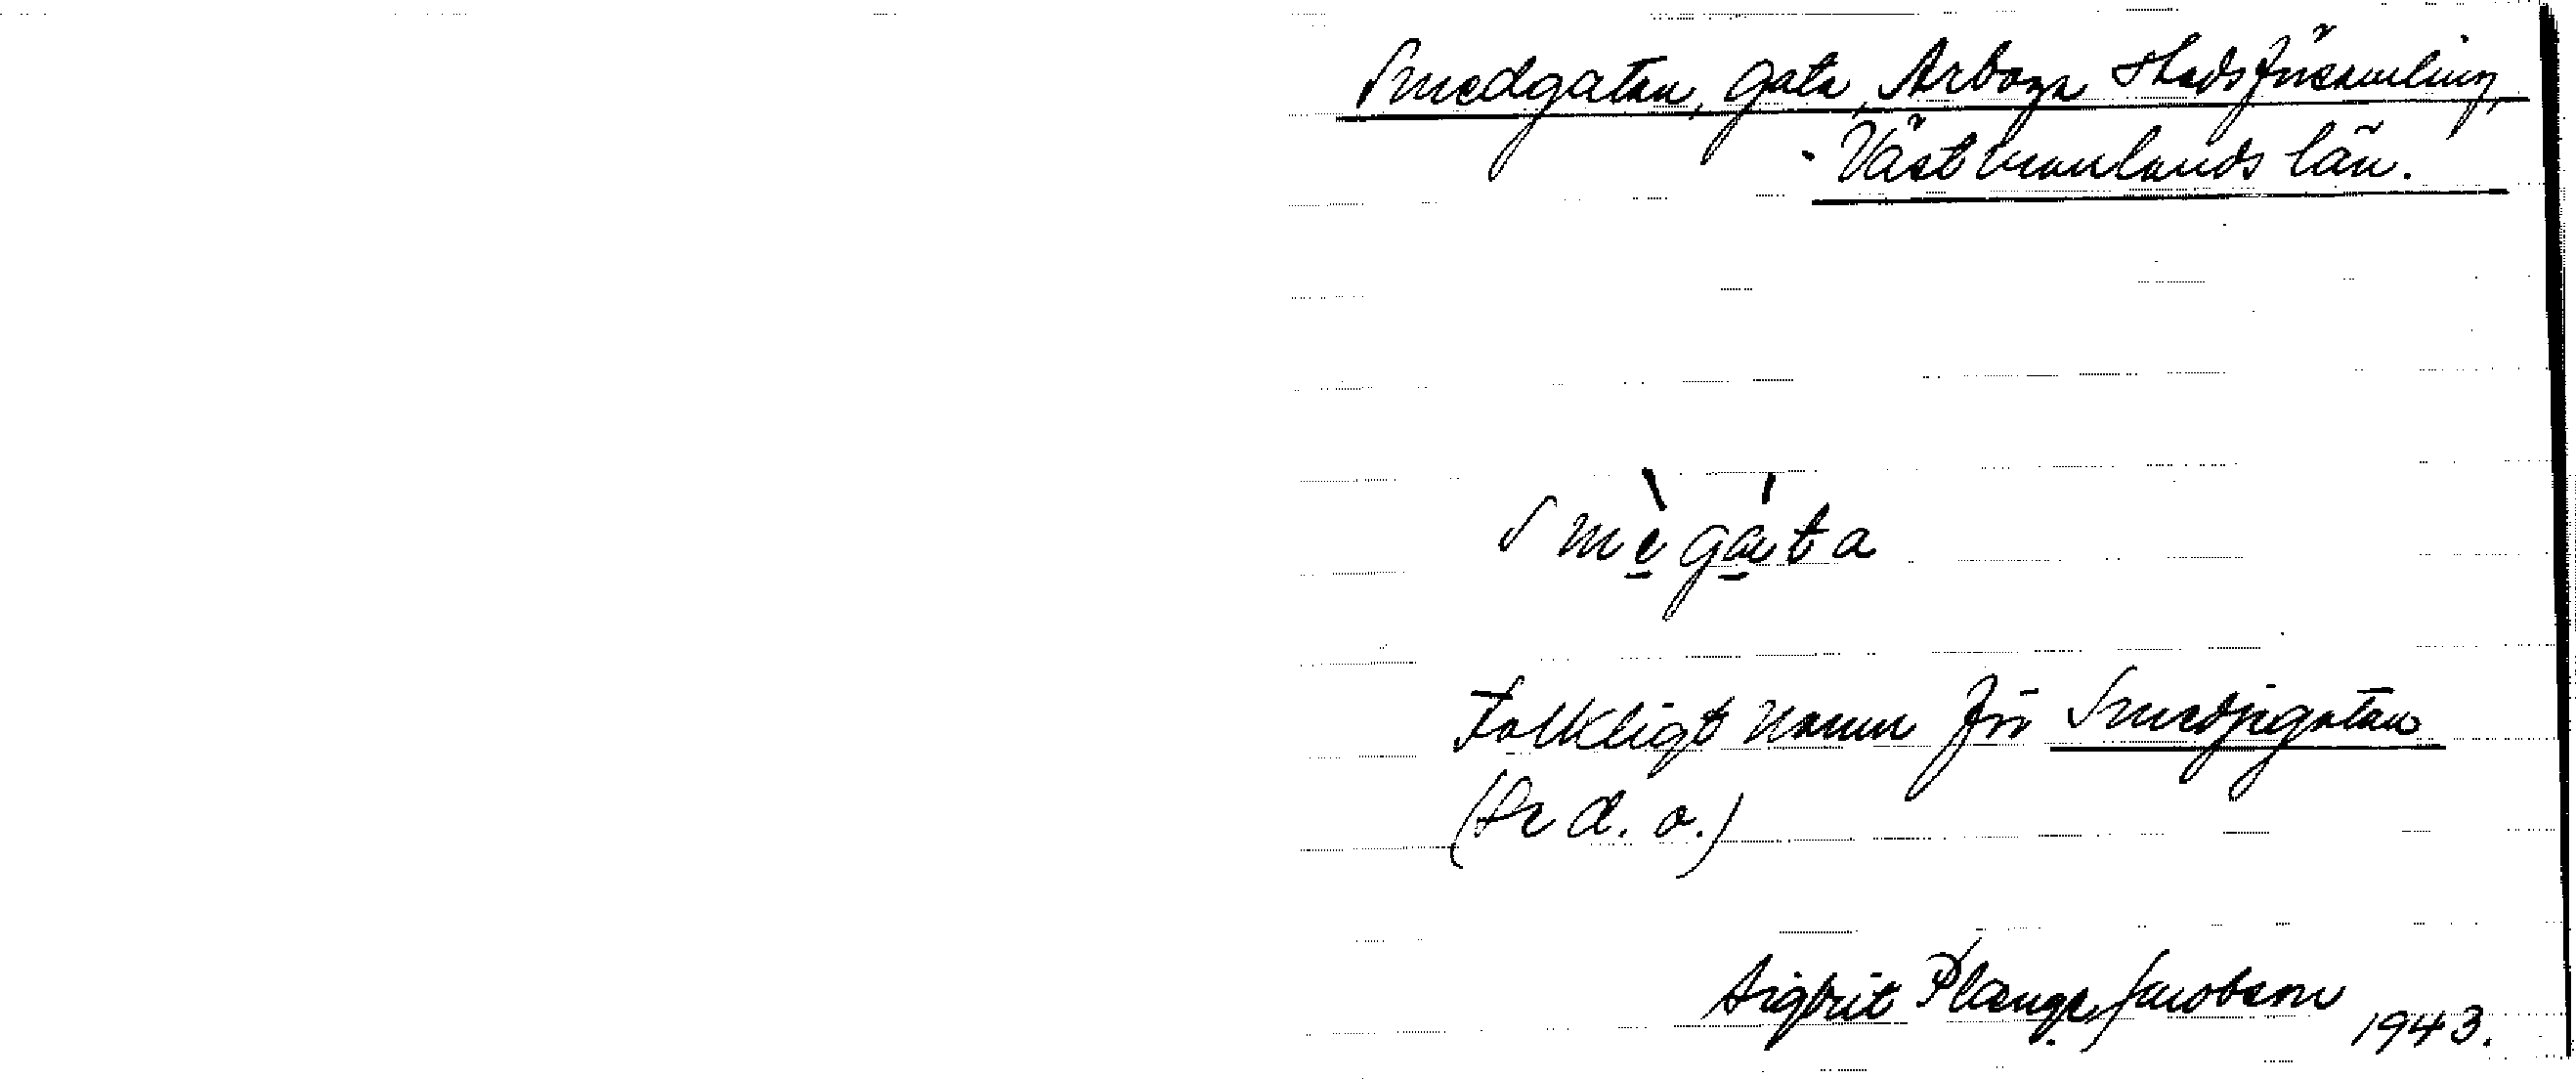 Smedgatan, gata, Arboga stadsförsamling,
Västmanlands län.
smègáta
Folkligt namn för Smedjegatan
(Se d. o.)
Sigbrit Plænge Jacobson 1943.